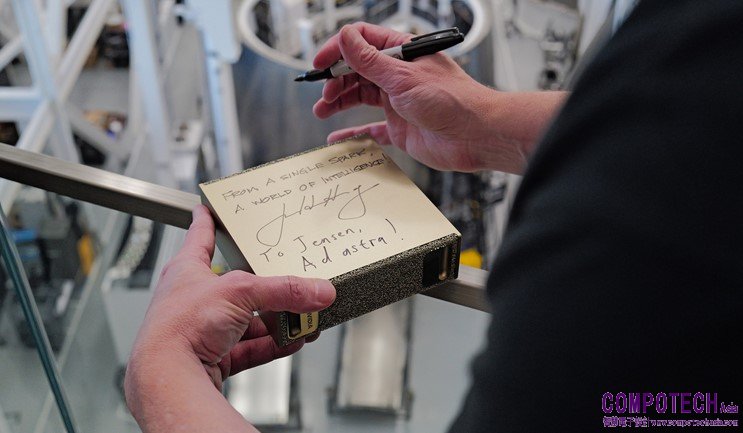 FROM A SINGLE SPARK,
A WORLD OF INTELLIGENCE!
To Jensen,
Ad astra!
NVIDIA
COMPOTECH Asia
www.compotechasia.com